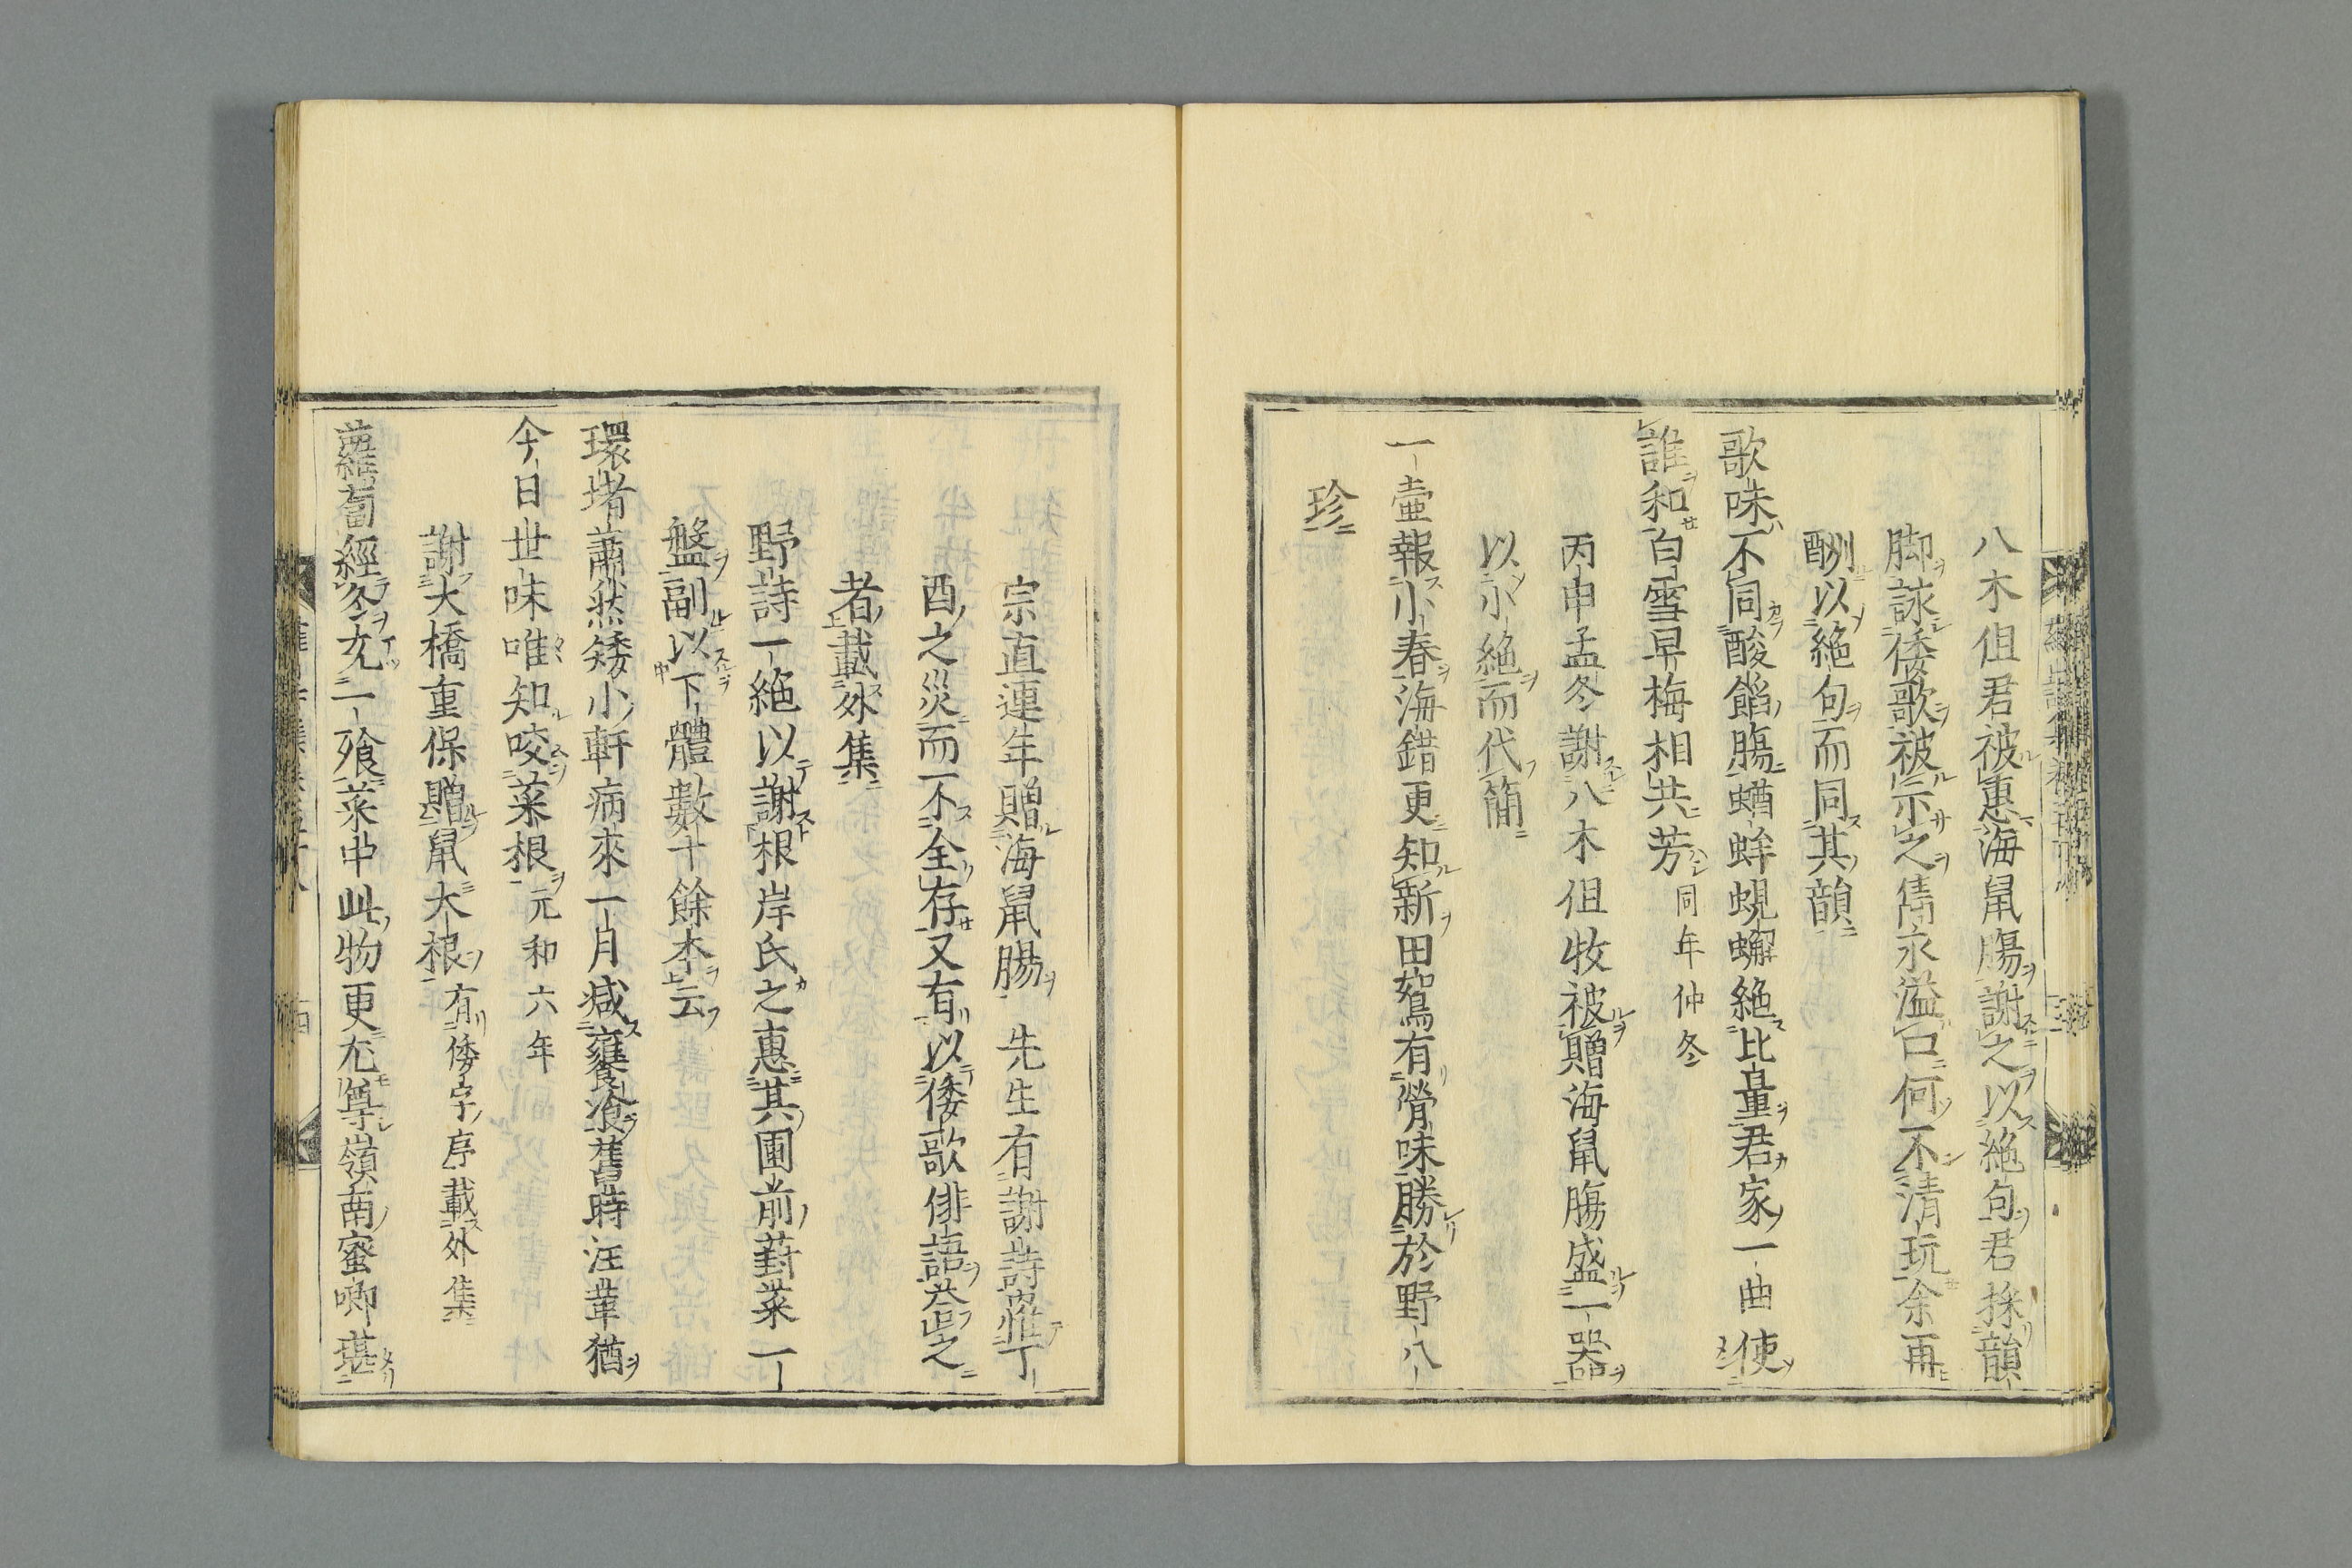 八木伹君被惠海鼠膓謝之以絶句君採韻
脚詠倭歌被示之雋永溢口何不清玩余再
酬以絶句而同其韻
歌味不同酸餡膓蝤蛑蜆蠏絶比量君家一曲使
誰和白雪早梅相共芳 同年仲冬
丙申孟冬謝八木伹牧被贈海鼠膓盛一器
以小絶而代簡
一壷報小春海錯更知新田鴽有臂味勝於野八
珍
宗直連年贈海鼠膓 先生有謝詩罹丁
酉之災而不全存又有以倭歌俳語荅之
者載外集
野詩一絶以謝根岸氏之惠其圃前葑菜一
盤副以下體數十餘本云
環堵蕭然矮小軒病來一月减饔飧舊時汪革猶
今日世味唯知咬菜根 元和六年
謝大橋重保贈鼠大根 有倭字序載外集
蘿蔔經冬充一飱菜中此物更尤尊嶺南蜜唧堪